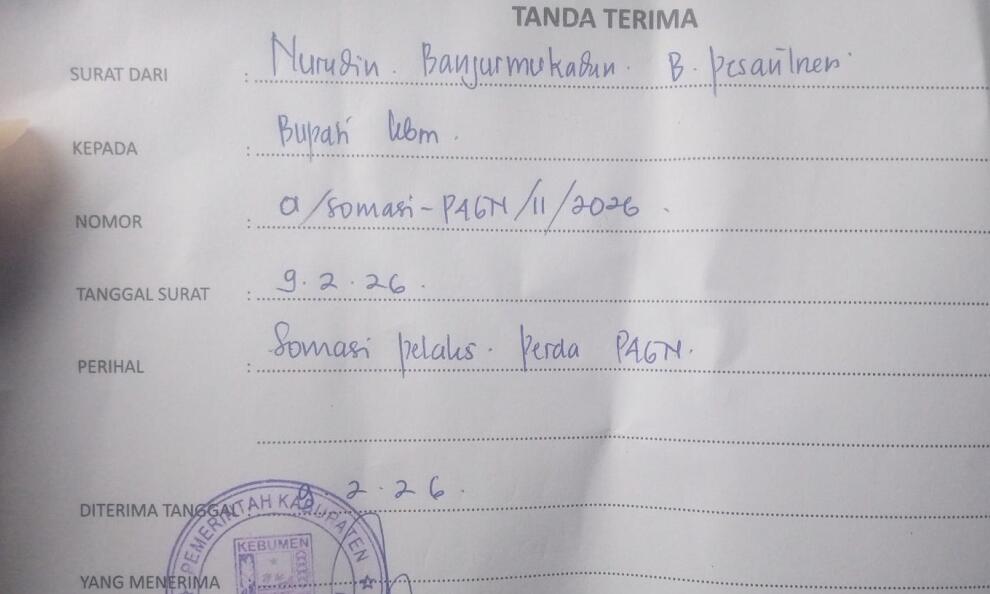 TANDA TERIMA
SURAT DARI : Nurudin. Banjurmukadan. B. pesantren
KEPADA : Bupati kbm.
NOMOR : a/somasi-PAGN/11/2026.
TANGGAL SURAT : 9.2.26.
PERIHAL : Somasi pelaks. perda PAGN.
DITERIMA TANGGAL 9.2.26.
PEMERINTAH KABUPATEN
KEBUMEN
YANG MENERIMA